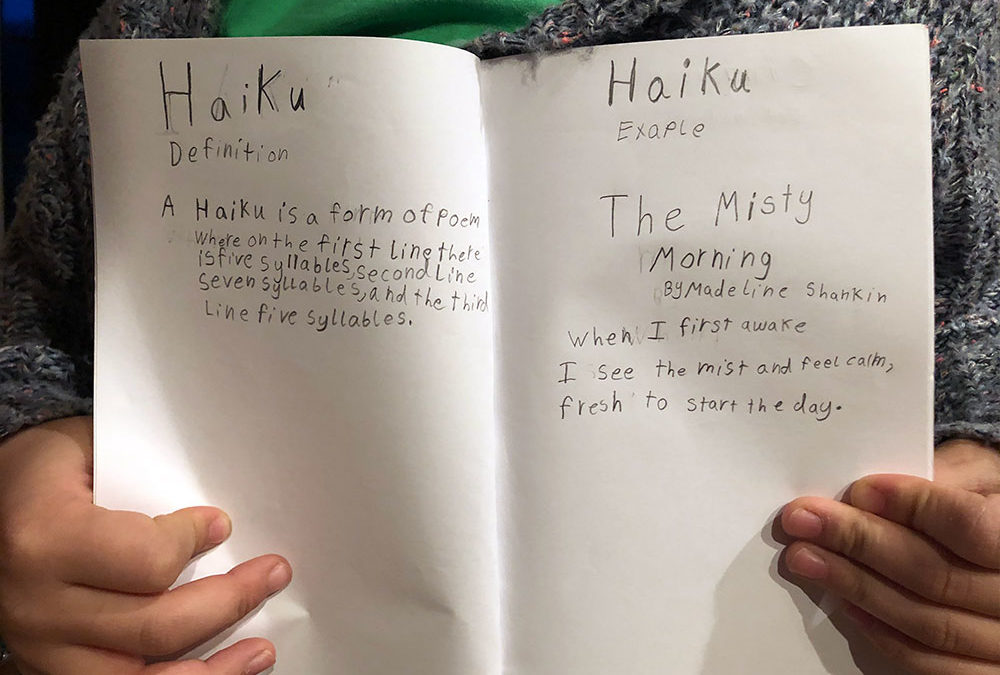 Haiku
Definition
A Haiku is a form of poem
where on the first line there
is five syllables, second Line
seven syllables, and the third
Line five syllables.
Haiku
Exaple
The Misty
Morning
By Madeline Shankin
when I first awake
I see the mist and feel calm,
fresh to start the day.